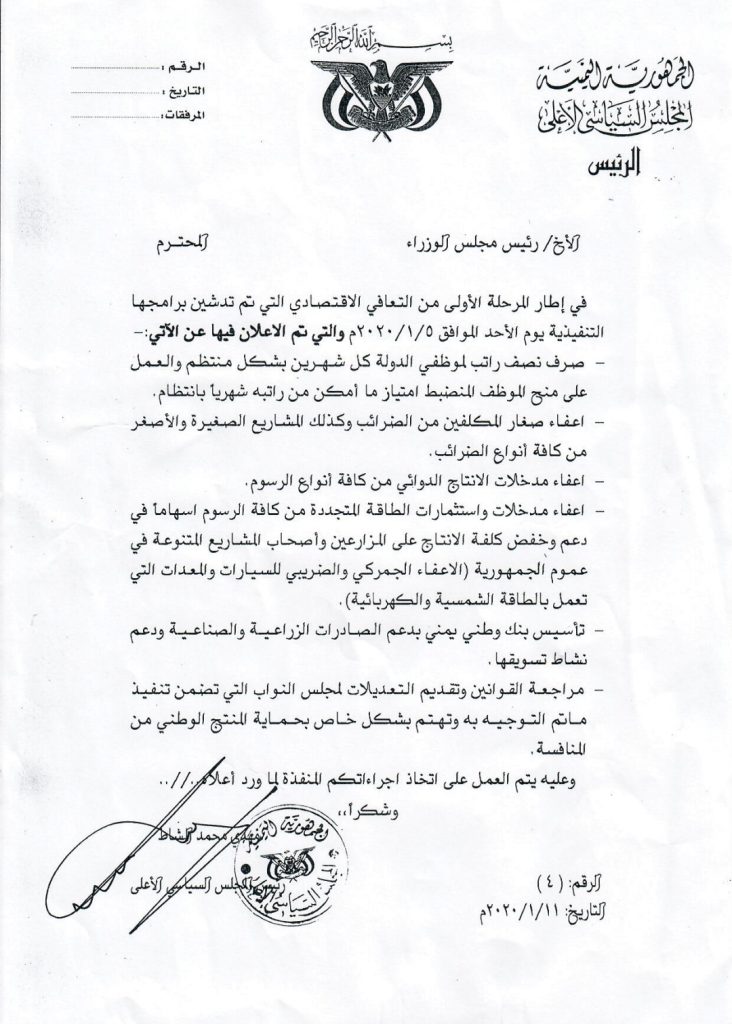 بسم الله الرحمن الرحيم
الجمهورية اليمنية
المجلس السياسي الأعلى
الرئيس
الـرقـم :
التاريخ :
المرفقات:
الأخ/ رئيس مجلس الوزراء المحتـرم
في إطار المرحلة الأولى من التعافي الاقتصادي التي تم تدشين برامجها
التنفيذية يوم الأحد الموافق ٢٠٢٠/١/٥م والتي تم الاعلان فيها عن الآتي:-
- صرف نصف راتب لموظفي الدولة كل شهرين بشكل منتظم والعمل
على منح الموظف المنضبط امتياز ما أمكن من راتبه شهرياً بانتظام.
- اعفاء صغار المكلفين من الضرائب وكذلك المشاريع الصغيرة والأصغر
من كافة أنواع الضرائب.
- اعفاء مدخلات الانتاج الدوائي من كافة أنواع الرسوم.
- اعفاء مدخلات واستثمارات الطاقة المتجددة من كافة الرسوم اسهاماً في
دعم وخفض كلفة الانتاج على المزارعين وأصحاب المشاريع المتنوعة في
عموم الجمهورية (الاعفاء الجمركي والضريبي للسيارات والمعدات التي
تعمل بالطاقة الشمسية والكهربائية).
- تأسيس بنك وطني يمني بدعم الصادرات الزراعية والصناعية ودعم
نشاط تسويقها.
- مراجعة القوانين وتقديم التعديلات لمجلس النواب التي تضمن تنفيذ
ماتم التوجيه به وتهتم بشكل خاص بحماية المنتج الوطني من
المنافسة.
وعليه يتم العمل على اتخاذ اجراءاتكم المنفذة لما ورد أعلاه..//..
وشكراً،،
مهدي محمد المشاط
رئيس المجلس السياسي الأعلى
الجمهورية اليمنية
المجلس السياسي الأعلى
الرقم: (٤)
التاريخ: ٢٠٢٠/١/١١م